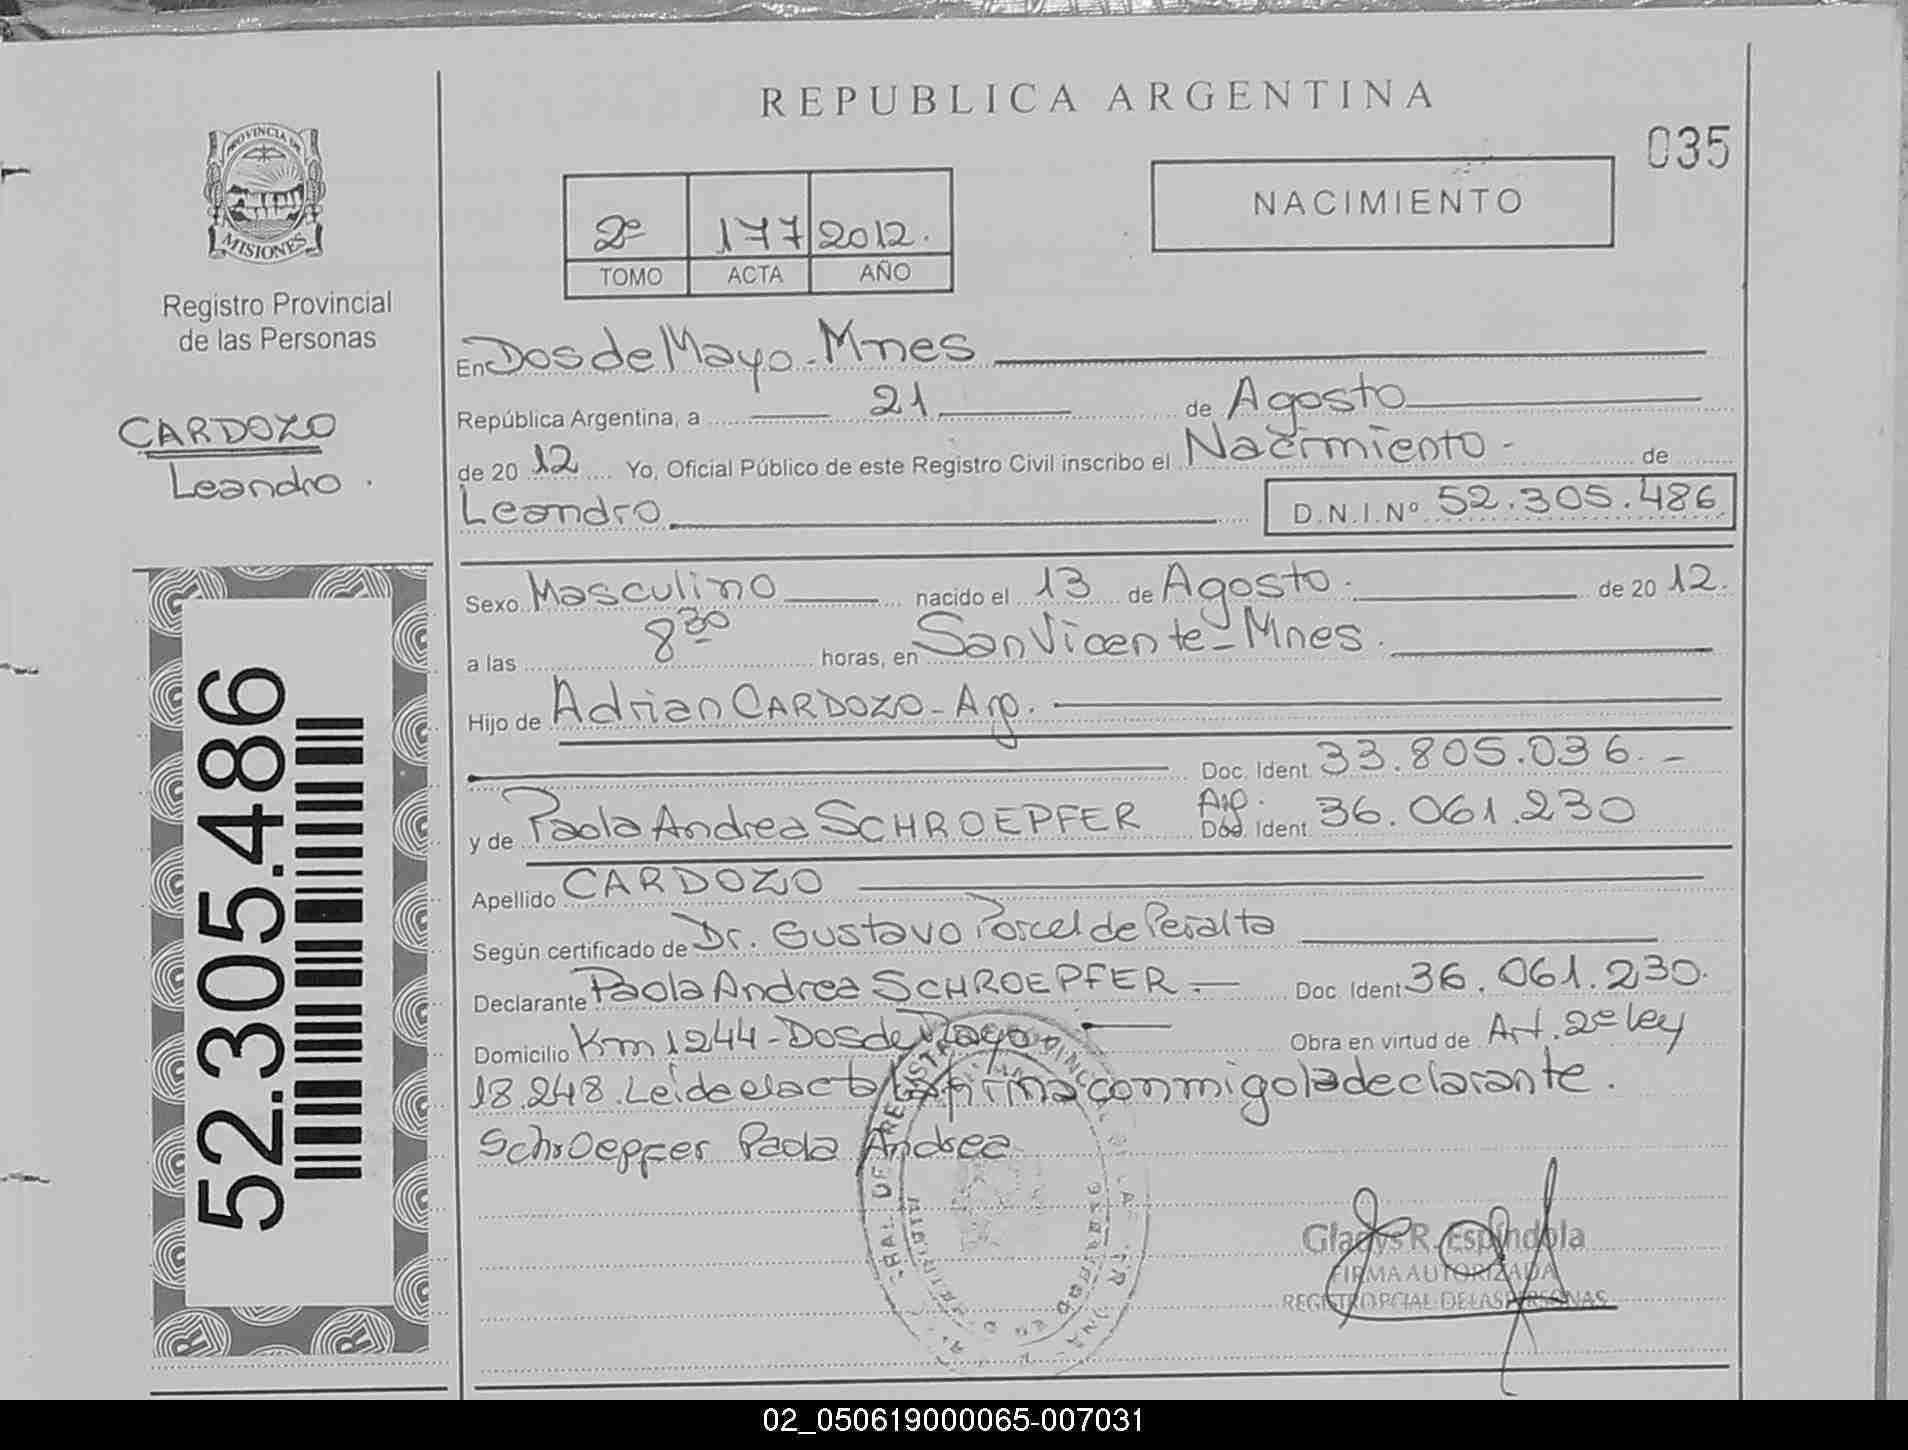 REPUBLICA ARGENTINA
035
PROVINCIA DE
MISIONES
Registro Provincial
de las Personas
CARDOZO
Leandro.
52.305.486
2º 177 2012.
TOMO ACTA AÑO
NACIMIENTO
En Dos de Mayo - Mnes
República Argentina, a 21 de Agosto
de 20 12 Yo, Oficial Público de este Registro Civil inscribo el Nacimiento - de
Leandro D.N.I.Nº 52.305.486
Sexo Masculino nacido el 13 de Agosto. de 20 12.
a las 8 30 horas, en San Vicente - Mnes.
Hijo de Adrian CARDOZO - Arg.
Doc. Ident. 33.805.036. -
Arg.
y de Paola Andrea SCHROEPFER Doc. Ident. 36.061.230
Apellido CARDOZO
Según certificado de Dr. Gustavo Porcel de Peralta
Declarante Paola Andrea SCHROEPFER - Doc. Ident. 36.061.230.
Domicilio Km 1244 - Dos de Mayo. Obra en virtud de Art. 2º ley
18.248. Leída el acta la firma conmigo la declarante.
Schroepfer Paola Andrea
Gladys R. Espíndola
FIRMA AUTORIZADA
REGISTRO PCIAL DE LAS PERSONAS
02_050619000065-007031